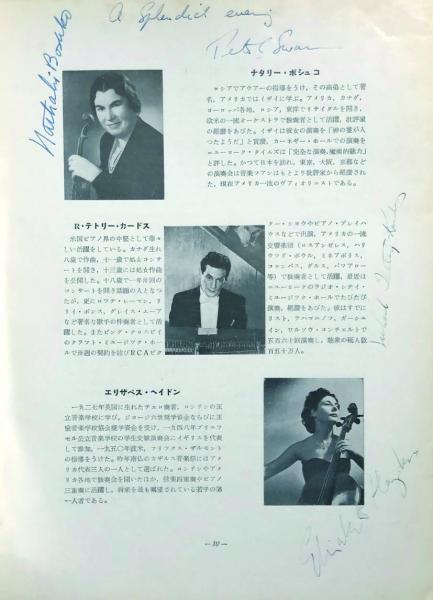 A Splendid evening
Nathalie Boshko
ナタリー・ボシュコ
ロシアでアウアーの指導をうけ、その高弟として著
名。アメリカではイザイに学ぶ。アメリカ、カナダ、
ヨーロッパ各地、ロシア、東洋でリサイタルを開き、
欧米の一流オーケストラで独奏者として活躍、批評家
の絶讃をあびた。イザイは彼女の演奏を「神の霊が入
つたようだ」と賞讃、カーネギー・ホールでの演奏を
ニューヨーク・タイムズは「完全な演奏、魔術的魅力」
と評した。かつて日本を訪れ、東京、大阪、京都などで
の演奏会は音楽フアンはもとより批評家から絶讃され
た、現在アメリカ一流のヴァイオリニストである。
R・テトリー・カードス
米国ピアノ界の中堅として華々
しい活躍をしている。カナダ生れ
八歳で作曲、十一歳で処女コンサ
ートを開き、十三歳には処女作曲
を公開した。十八歳で一年卅回の
コンサートを開き話題の人となつ
たが、更にロツテ・レーマン、リ
リイ・ポンス、グレイス・ムーア
など著名な歌手の伴奏者として活
躍した。またビング・クロスビイ
のクラフト・ミュージック・ホー
ルで出演の契約を結びRCAビク
ター・ショウやピアノ・プレイハ
ウスなどで出演、アメリカの一流
交響楽団(ロスアンゼルス、ハリ
ウツド・ボウル、ミネアポリス、
コロンバス、ダルス、バフアロー
等)で独奏者として活躍、最近は
ニューヨークのラジオ・シテイ・
ミュージック・ホールでたびたび
演奏、絶讃をあびた。彼はすでに
リスト、ラフマニノフ、ガーシュ
イン、ワルソウ・コンチェルトで
五百六十回演奏し、聴衆の延人数
百五十万人。
エリザベス・ヘイドン
一九二七年英国に生れたチェロ奏者。ロンドンの王
立音楽学校に学び、ジョージ六世奨学金ならびに王
室音楽学校協会奨学資金を受け、一九四八年ブリュツセ
ル公立音楽学校の学生交驩演奏会にイギリスを代表
して参加。一九五〇年渡米、フリックス・ザルモンド
の指導をうける。昨年南仏のカザルス音楽祭にはアメ
リカ代表三人の一人として選ばれた。ロンドンやアメ
リカ各地で独奏会を開いたほか、弦楽四重奏やピアノ
三重奏に活躍し、将来を最も嘱望されている若手の第
一人者である。
— 10 —